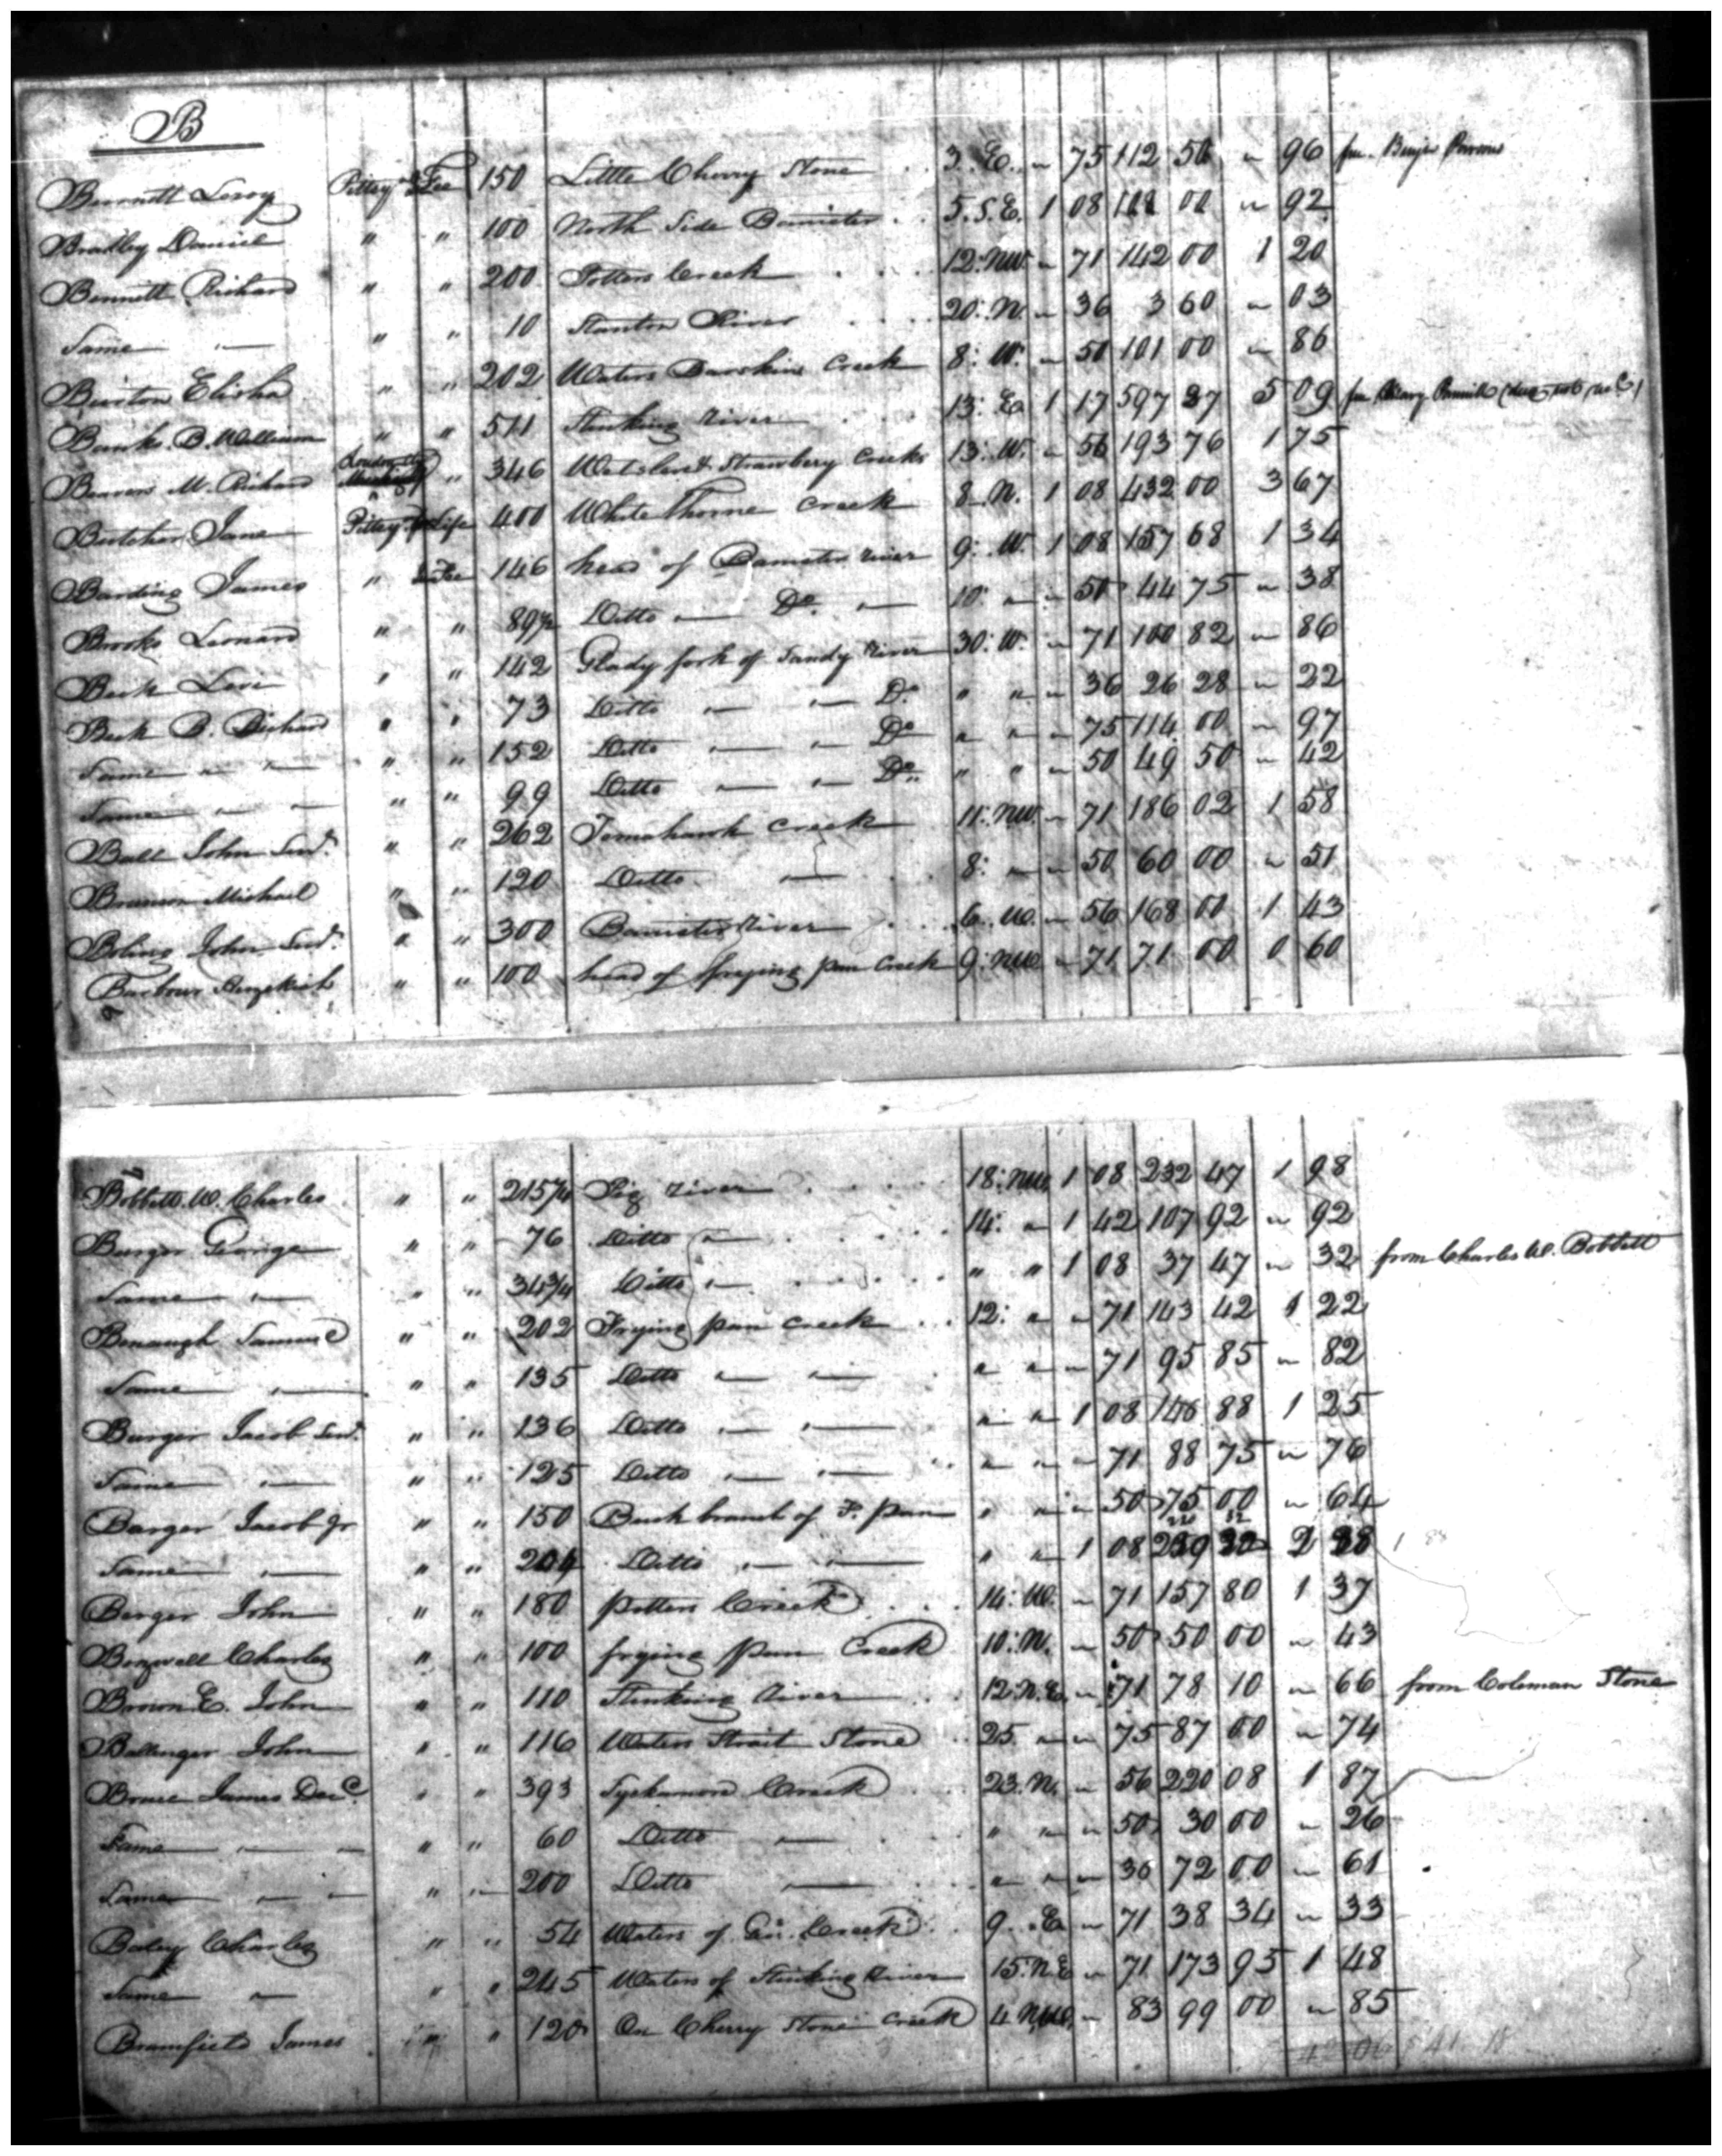 B
Burnett Leroy Pittsy Fee 150 Little Cherry Stone 3. E. " 75 112 50 " 96 fm. Benja Parsons
Bradley Daniel " " 100 North Side Banister 5. S. E. 1 08 108 00 " 92
Bennett Richard " " 200 Potters Creek 12. NW. " 71 142 00 1 20
Same " " 10 Stanton River 20. N. " 36 3 60 " 03
Burton Elisha " " 202 Waters Bearskin Creek 8. W. " 50 101 00 " 86
Banks B. William " " 511 Stinking River 13. E. 1 17 597 87 5 09 fm
Beavers M. Richard " 346 & Strawbery Creeks 13. W. " 56 193 76 1 75
Butcher Jane Pittsy Life 400 White Thorne Creek 8. N. 1 08 432 00 3 67
Barding James " Fee 146 head of Banister river 9. W. 1 08 157 68 1 34
Brooks Leonard " " 89½ Ditto Do. 10. " " 50 44 75 " 38
Beck Levi " " 142 Glady fork of Sandy River 30. W. " 71 100 82 " 86
Beck B. Richard " " 73 Ditto Do. " " " 36 26 28 " 22
Same " " 152 Ditto Do. " " " 75 114 00 " 97
Same " " 99 Ditto Do. " " " 50 49 50 " 42
Ball John Senr. " " 262 Tomahawk Creek 11. NW. " 71 186 02 1 58
Branson Michael " " 120 Ditto 8. " " 50 60 00 " 51
Boling John Senr. " " 300 Banister River 6. W. " 56 168 00 1 43
Barbour Hezekiah " " 100 head of frying pan Creek 9. NW. " 71 71 00 0 60
Bobbett W. Charles " " 215¼ Pig river 18. NW. 1 08 232 47 1 98
Burger George " " 76 Ditto 14. " 1 42 107 92 " 92
Same " " 34¾ Ditto " " 1 08 37 47 " 32 from Charles W. Bobbett
Samuel " " 202 Frying pan creek 12. " " 71 143 42 1 22
Same " " 135 Ditto " " " 71 95 85 " 82
Burger Jacob Senr. " " 136 Ditto " " 1 08 146 88 1 25
Same " " 125 Ditto " " " 71 88 75 " 76
Barger Jacob Jr " " 150 Buck branch of F. pan " " " 50 75 00 " 64
Same " " 204 Ditto " " 1 08 2 1 88
Berger John " " 180 potters Creek 14. W. " 71 157 80 1 37
Bozwell Charles " " 100 frying pan Creek 10. N. " 50 50 00 " 43
Brown E. John " " 110 Stinking River 12. N. E. " 71 78 10 " 66 from Coleman Stone
Ballinger John " " 116 Waters Strait Stone 25 " " 75 87 00 " 74
Bruce James Decd. " " 393 Syckamore Creek 23. N. " 56 220 08 1 87
Same " " 60 Ditto " " " 50 30 00 " 26
Same " " 200 Ditto " " " 36 72 00 " 61
Baley Charles " " 54 Waters of Creek 9. E. " 71 38 34 " 33
Same " " 245 Waters of Stinking River 15. N. E. " 71 173 95 1 48
Bramfield James " " 120 On Cherry Stone Creek 4. NW. " 83 99 00 " 85
42 06 41 18